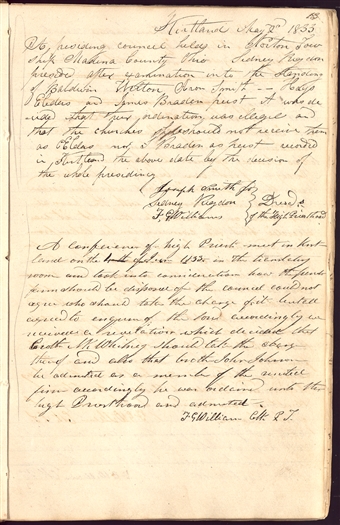 Kirtland May 2d 1833
A presiding council held in Norton Town
ship Madina County Ohio Sidney Rigdon
presided after examination into the standing
of Baldwin Welton, Aron Smith Hays
Elders and James Braden priest it was de
cided that their ordination was illegal and
that the churches should not receive them
as Elders nor J Braden as priest recorded
in Kirtland the above date by the decision of
the whole presidency
Joseph Smith Jr
Sidney Rigdon
F G Williams
Presdts
of the High Priesthood
A conference of high Priests met in Kirt
land on the 1833 in the translating
room and took into consideration how the french
farm should be disposed of the council could not
agree who should take the charge of it but all
agreed to enquire of the Lord accordingly we
received a revelation which decided that
broth N K Whitney should take the charge
thereof and also that broth John Johnson
be admitted as a member of the united
firm accordingly he was ordained unto the
high Priesthood and admitted
F G William Clk P T